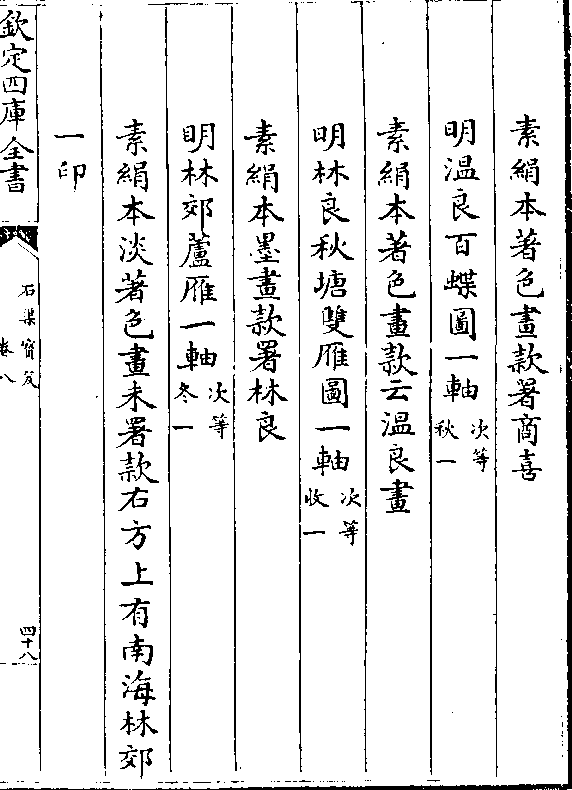 素絹本著色畫款署商喜
明温良百蝶圖一軸次等秋一
素絹本著色畫款云温良畫
明林良秋塘雙雁圖一軸次等收一
素絹本墨畫款署林良
明林郊蘆雁一軸次等冬一
素絹本淡著色畫未署款右方上有南海林郊
一印
欽定四庫全書
石渠寳笈
卷八
四十八